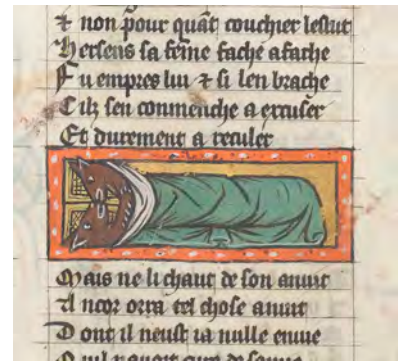 ⁊ non pour quāt couchier lestut
Hersens sa fēme fache a fache
Fu empres lui ⁊ si len brache
Cilz sen conmenche a excuser
Et durement a reculer
Mais ne li chaut de son anuit
Ancor orra tel chose anuit
Dont il neust ia nulle enuie